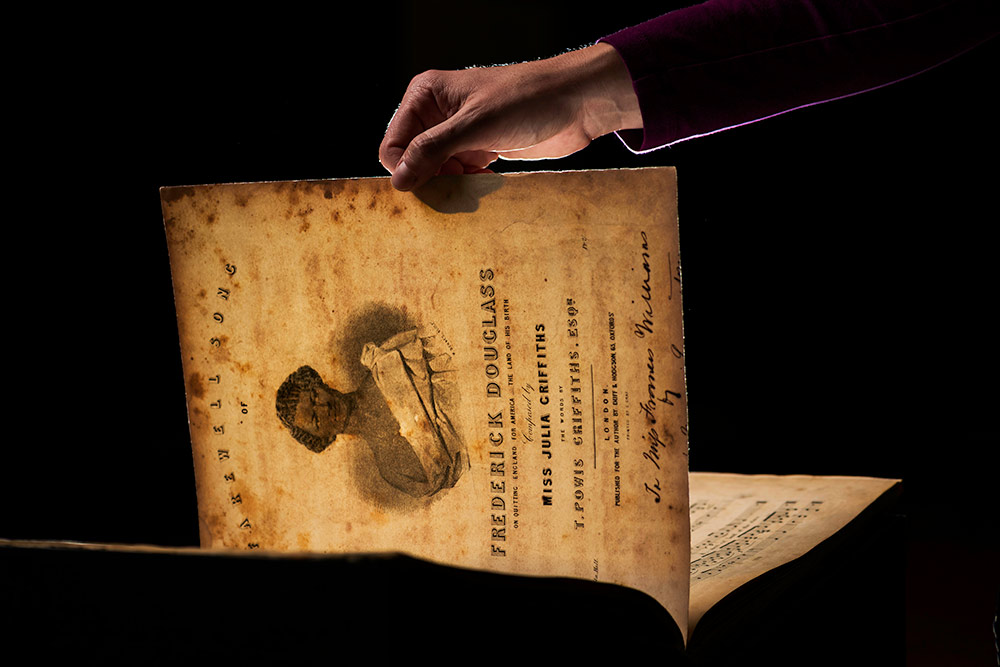 FAREWELL SONG
OF
FREDERICK DOUGLASS
ON QUITTING ENGLAND FOR AMERICA — THE LAND OF HIS BIRTH
Composed by
MISS JULIA GRIFFITHS
THE WORDS BY
T. POWIS GRIFFITHS. ESQR
LONDON,
PUBLISHED FOR THE AUTHOR BY DUFF & HODGSON 65 OXFORD ST
To Miss Frances Williams
by